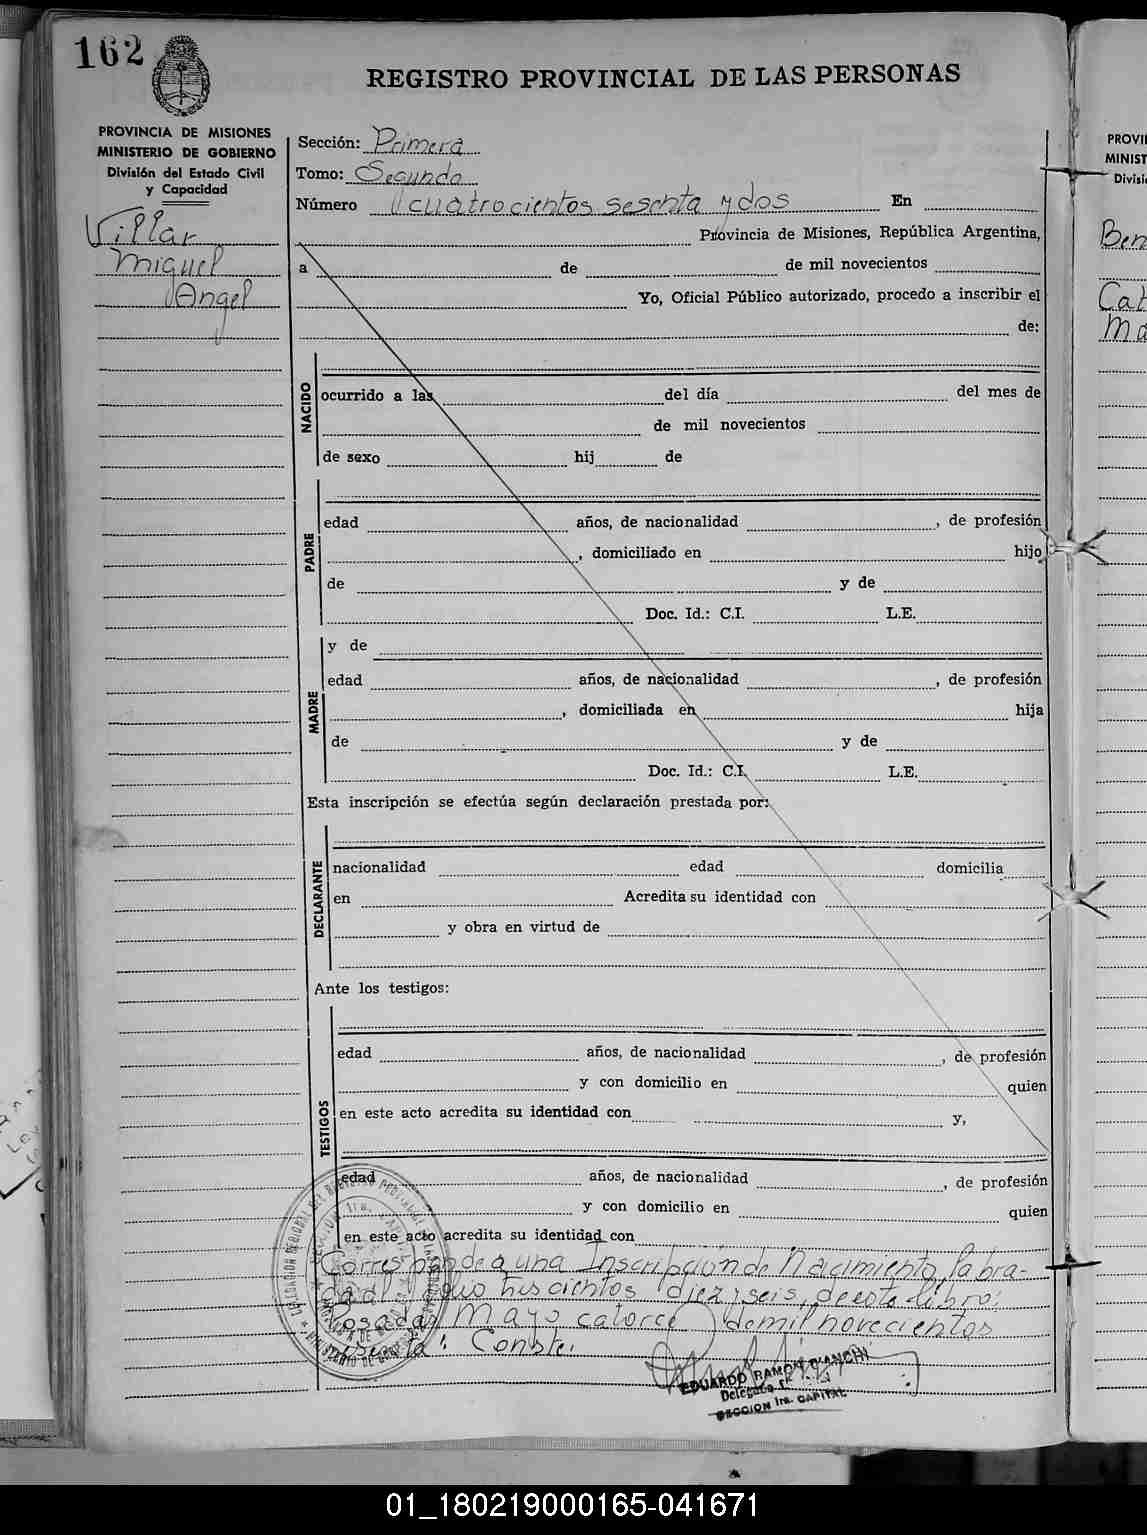 162
REGISTRO PROVINCIAL DE LAS PERSONAS
PROVINCIA DE MISIONES
MINISTERIO DE GOBIERNO
División del Estado Civil
y Capacidad
Villar
Miguel
Angel
Sección: Primera
Tomo: Segundo
Número cuatrocientos sesenta y dos En
Provincia de Misiones, República Argentina,
a de de mil novecientos
Yo, Oficial Público autorizado, procedo a inscribir el
de:
NACIDO
ocurrido a las del día del mes de
de mil novecientos
de sexo hij de
PADRE
edad años, de nacionalidad , de profesión
, domiciliado en hijo
de y de
Doc. Id.: C.I. L.E.
y de
MADRE
edad años, de nacionalidad , de profesión
, domiciliada en hija
de y de
Doc. Id.: C.I. L.E.
Esta inscripción se efectúa según declaración prestada por:
DECLARANTE
nacionalidad edad domicilia
en Acredita su identidad con
y obra en virtud de
Ante los testigos:
TESTIGOS
edad años, de nacionalidad , de profesión
y con domicilio en quien
en este acto acredita su identidad con y,
edad años, de nacionalidad , de profesión
y con domicilio en quien
en este acto acredita su identidad con
Corresponde a una Inscripción de Nacimiento, labra-
da al folio trescientos dieziseis, de este libro:
Posadas, Mayo catorce de mil novecientos
Conste.
EDUARDO RAMON BIANCHI
SECCION 1ra. CAPITAL
PROVI
MINIST
Divisi
Ben
Cab
Ma
01_180219000165-041671